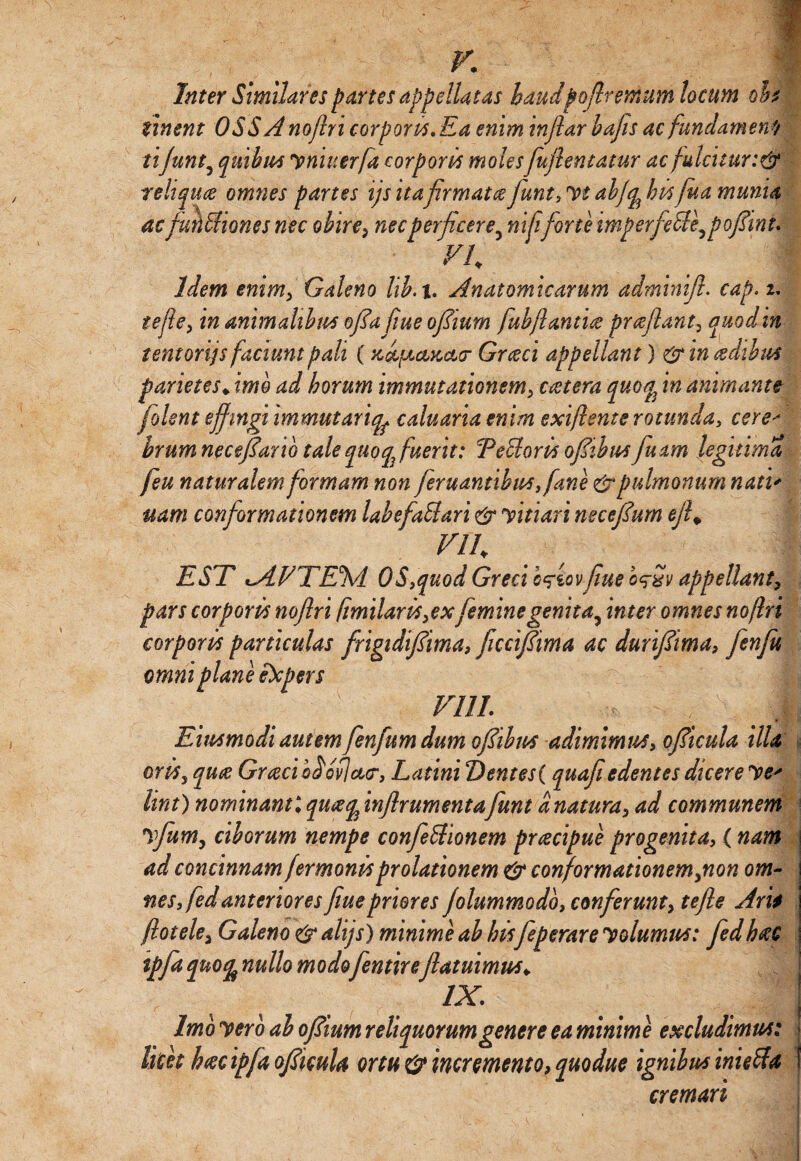 V.
Inter Similares partes appellatas haud postremum locum ob⸗
tinent OSSA nostri corporis. Ea enim instar basis ac fundament
ti sunt, quibus vniuersa corporis moles sustentatur ac fulcitur: &
reliquæ omnes partes ijs ita firmatæ sunt, vt absq́ his sua munia
ac functiones nec obire, nec perficere, nisi forte imperfecte, possint.
VI.
Idem enim, Galeno lib. 1. Anatomicarum administ. cap. 2.
teste, in animalibus ossa siue ossium substantia præstant, quod in
tentorijs faciunt pali ( κάμακασ Græci appellant ) & in ædibus
parietes. imo ad horum immutationem, cætera quoq́ in animante
solent effingi immutariq́, caluaria enim existente rotunda, cere⸗
brum necessario tale quoq́ fuerit: Pectoris ossibus suam legitimã
seu naturalem formam non seruantibus, sane & pulmonum nati⸗
uam conformationem labefactari & vitiari necessum est.
VII.
EST AVTEM OS, quod Greci ὀστίον siue ὀστοῦν appellant,
pars corporis nostri similaris, ex semine genita, inter omnes nostri
corporis particulas frigidissima, siccissima ac durissima, sensu
omni plane expers
VIII.
Eiusmodi autem sensum dum ossibus adimimus, ossicula illa
oris, quæ Græci ὀδόντασ, Latini Dentes ( quasi edentes dicere ve⸗
lint) nominant: quæq́ instrumenta sunt à natura, ad communem
vsum, ciborum nempe confectionem præcipue progenita, ( nam
ad concinnam sermonis prolationem & conformationem, non om-
nes, sed anteriores siue priores solummodò, conferunt, teste Ari⸗
stotele, Galeno & alijs) minime ab his seperare volumus: sed hæc
ipsa quoq́ nullo modo sentire statuimus.
IX.
Imò verò ab ossium reliquorum genere ea minimè excludimus:
licèt hæc ipsa ossicula ortu & incremento, quodue ignibus iniecta
cremari